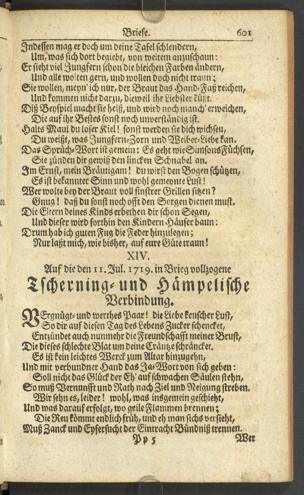 Briefe. 601
Indessen mag er doch um deine Tafel schlendern,
Um, was sich dort begiebt, von weitem anzuschaun:
Er sieht viel Jungfern schon die bleichen Farben ändern,
Und alle wolten gern, und wollen doch nicht traun;
Sie wollen, meyn' ich nur, der Braut das Hand-Faß reichen,
Und kommen nicht darzu, dieweil ihr Liebster küßt.
Diß Beyspiel macht sie heiß, und wird noch manch' erweichen,
Die auf ihr Bestes sonst noch unverständig ist.
Halts Maul du loser Kiel! sonst werden sie dich wischen,
Du weißt, was Jungfern-Zorn und Weiber-Liebe kan.
Das Sprüch-Wort ist gemein: Es geht wie Simsons Füchsen,
Sie zünden dir gewiß den lincken Schnabel an.
Im Ernst, mein Bräutigam! du wirst den Bogen schützen,
Es ist bekannter Sinn und wohl gemeynte Lust!
Wer wolte bey der Braut voll finstrer Grillen sitzen?
Gnug! daß du sonst noch offt den Sorgen dienen must.
Die Eltern deines Kinds erbethen dir schon Segen,
Und dieser wird forthin den Kindern Häuser baun:
Drum hab ich guten Fug die Feder hinzulegen;
Nur laßt mich, wie bisher, auf eure Güte traun!
XIV.
Auf die den 11. Jul. 1719. in Brieg vollzogene
Tscherning- und Hämpelische
Verbindung.
Vergnügt- und werthes Paar! die Liebe keuscher Lust,
So dir auf diesen Tag des Lebens Zucker schencket,
Entzündet auch nunmehr die Freundschafft meiner Brust,
Die dieses schlechte Blat um deine Cräntze schräncket.
Es ist kein leichtes Werck zum Altar hinzugehn,
Und mit verbundner Hand das Ja-Wort von sich geben:
Soll nicht das Glück der Eh' auf schwachen Säulen stehn,
So muß Vernunfft und Rath nach Ziel und Neigung streben.
Wir sehn es, leider! wohl, was insgemein geschieht,
Und was darauf erfolgt, wo geile Flammen brennen;
Die Reu kömmt endlich früh, und eh man sichs versieht,
Muß Zanck und Eyfersucht der Eintracht Bündniß trennen.
Pp 5 Wer